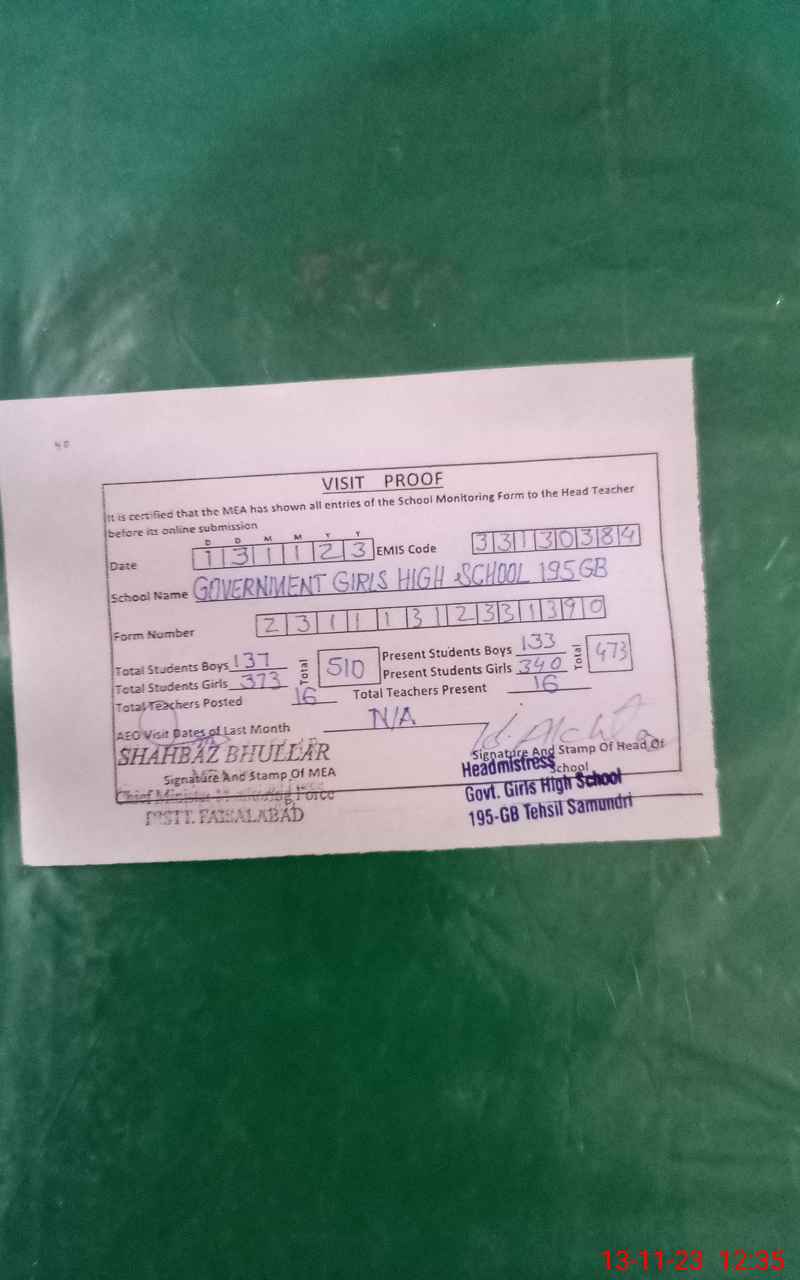 40
VISIT PROOF
It is certified that the MEA has shown all entries of the School Monitoring Form to the Head Teacher
before its online submission
D D M M Y Y
Date 131123 EMIS Code 33130384
School Name GOVERNMENT GIRLS HIGH SCHOOL 195GB
Form Number 23111312331390
Total Students Boys 137 Total 510 Present Students Boys 133 Total 473
Total Students Girls 373 Present Students Girls 340
Total Teachers Posted 16 Total Teachers Present 16
AEO Visit Dates of Last Month N/A
SHAHBAZ BHULLAR
Signature And Stamp Of MEA
Signature And Stamp Of Head Of
School
Chief Minister Monitoring Force
DISTT. FAISALABAD
Headmistress
Govt. Girls High School
195-GB Tehsil Samundri
13-11-23 12:35